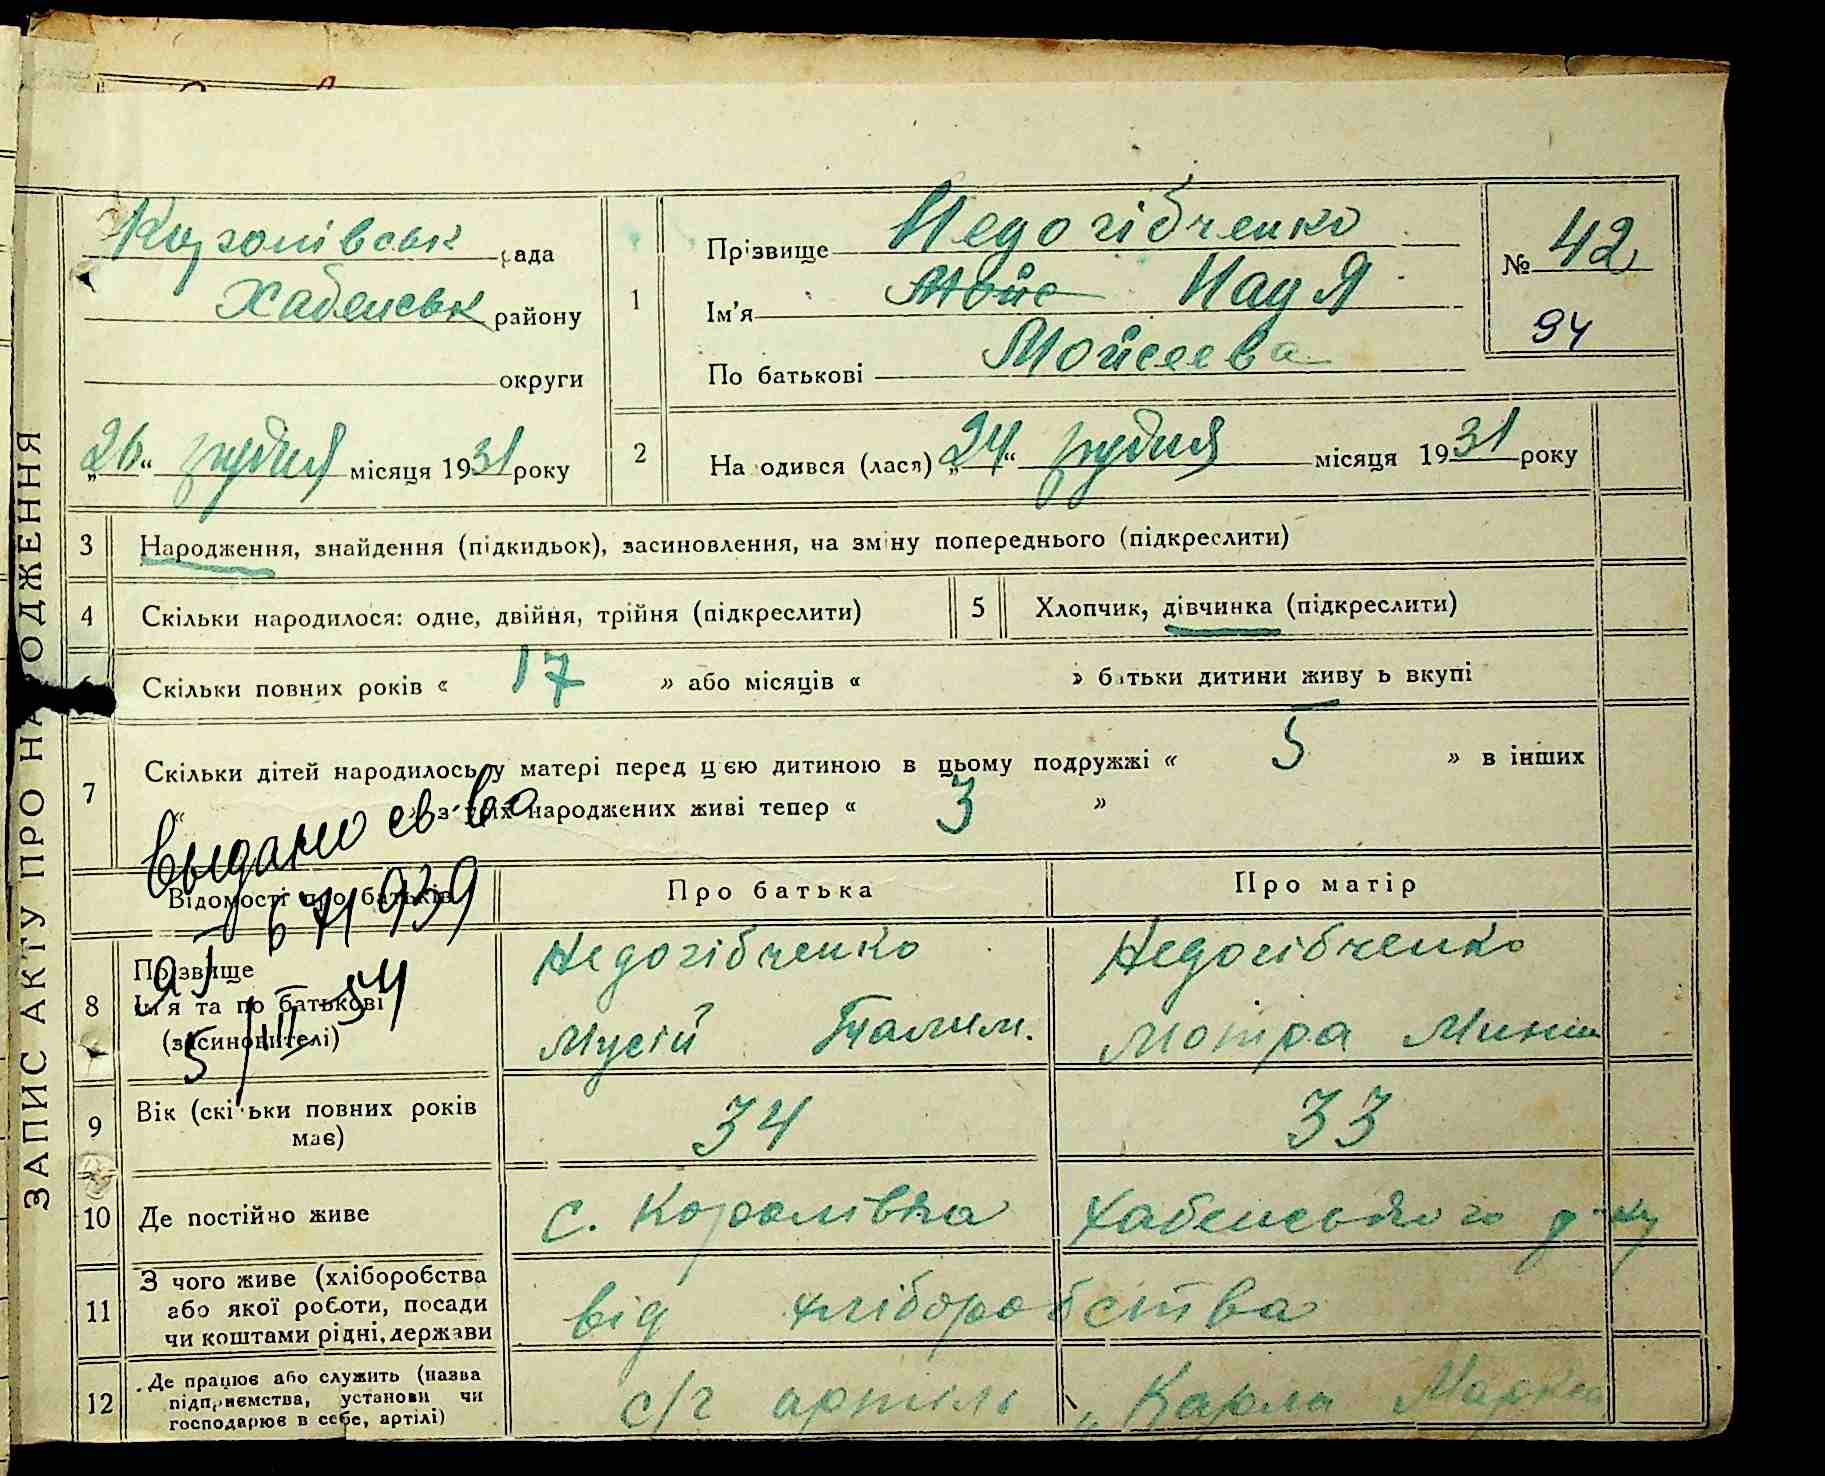 ЗАПИС АКТУ ПРО НАРОДЖЕННЯ
Королівськ рада
Хабенськ району
округи
„26“ грудня місяця 1931 року
1
Прізвище Недогібченко
Ім'я Мойс Надя
По батькові Мойсеева
№ 42
94
2
Народився (лася) „24“ грудня місяця 1931 року
3 Народження, знайдення (підкидьок), засиновлення, на зміну попереднього (підкреслити)
4 Скільки народилося: одне, двійня, трійня (підкреслити)
5 Хлопчик, дівчинка (підкреслити)
6 Скільки повних років « 17 » або місяців « » батьки дитини живуть вкупі
7 Скільки дітей народилось у матері перед цією дитиною в цьому подружжі « 5 » в інших
« » з усіх народжених живі тепер « 3 »
Выдано св-во
671939
5/III-54
Відомості про батьків Про батька Про матір
8 Прізвище
Ім'я та по батькові
(засиновителі)
Недогібченко
Мусій
Недогібченко
Мотра Миний
9 Вік (скільки повних років має) 34 33
10 Де постійно живе с. Королівка Хабенського р-ну
11 З чого живе (хліборобства
або якої роботи, посади
чи коштами рідні, держави
від хліборобства
12 Де працює або служить (назва
підприємства, установи чи
господарює в себе, артілі)
с/г артиль „Карла Маркса